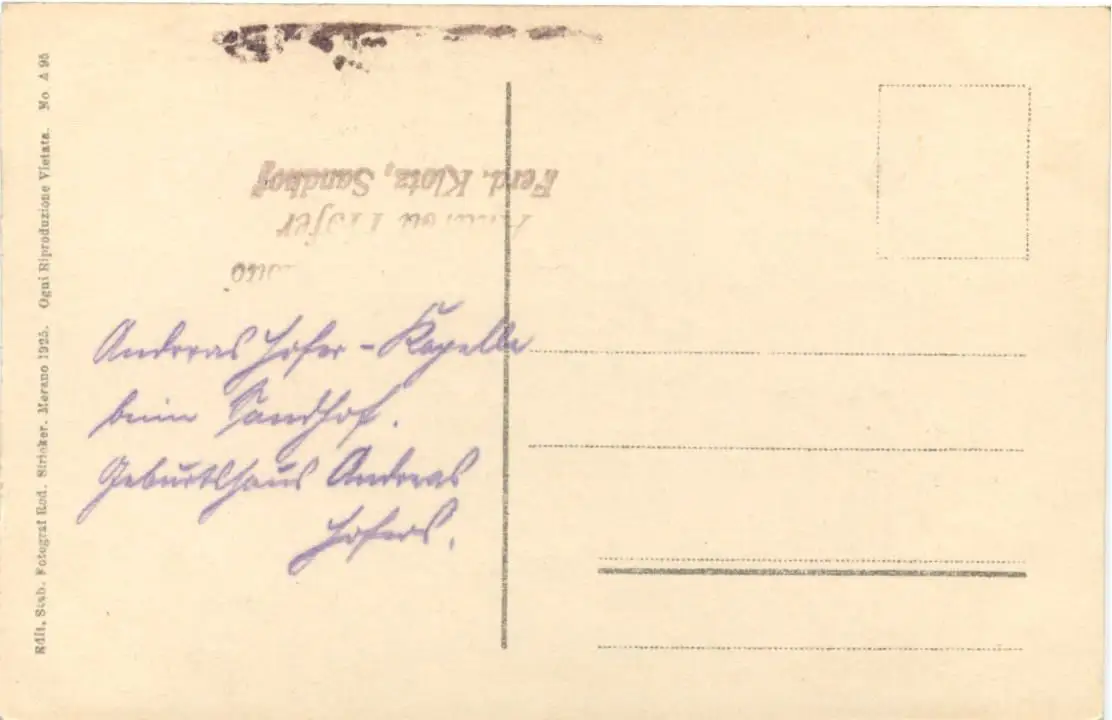 Edit. Stab. Fotograf Rod. Stricker. Merano 1925. Ogni Riproduzione Vietata. No. A 95
Ferd. Klotz, Sandhof
Hofer
Andreas Hofer - Kapelle
beim Sandhof.
Geburtshaus Andreas
Hofers.